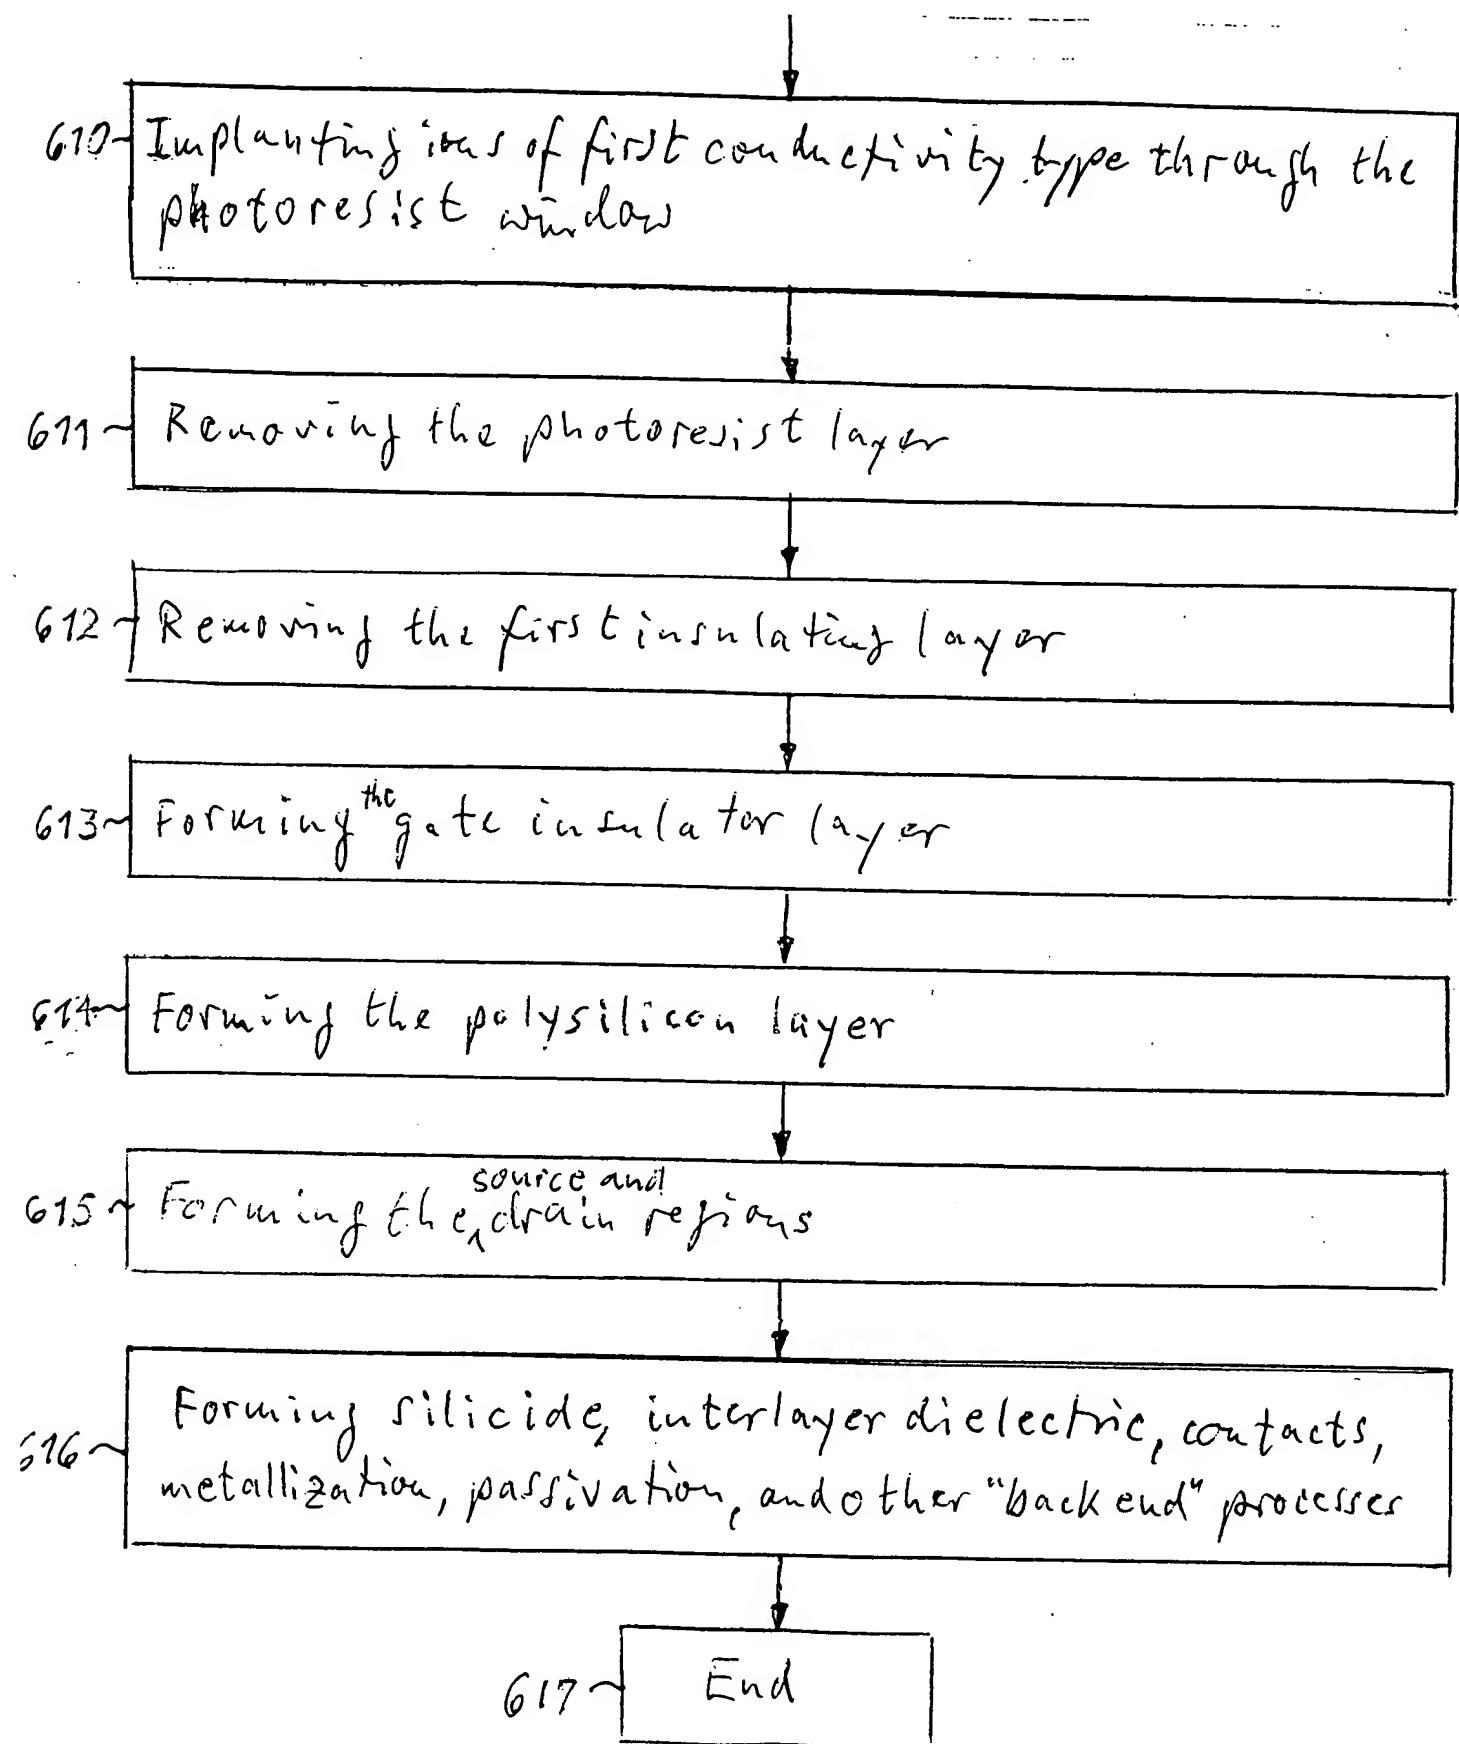 610 Implanting ions of first conductivity type through the
photoresist window
611 Removing the photoresist layer
612 Removing the first insulating layer
613 Forming the gate insulator layer
614 Forming the polysilicon layer
615 Forming the source and drain regions
616 Forming silicide, interlayer dielectric, contacts,
metallization, passivation, and other "back end" processes
617 End